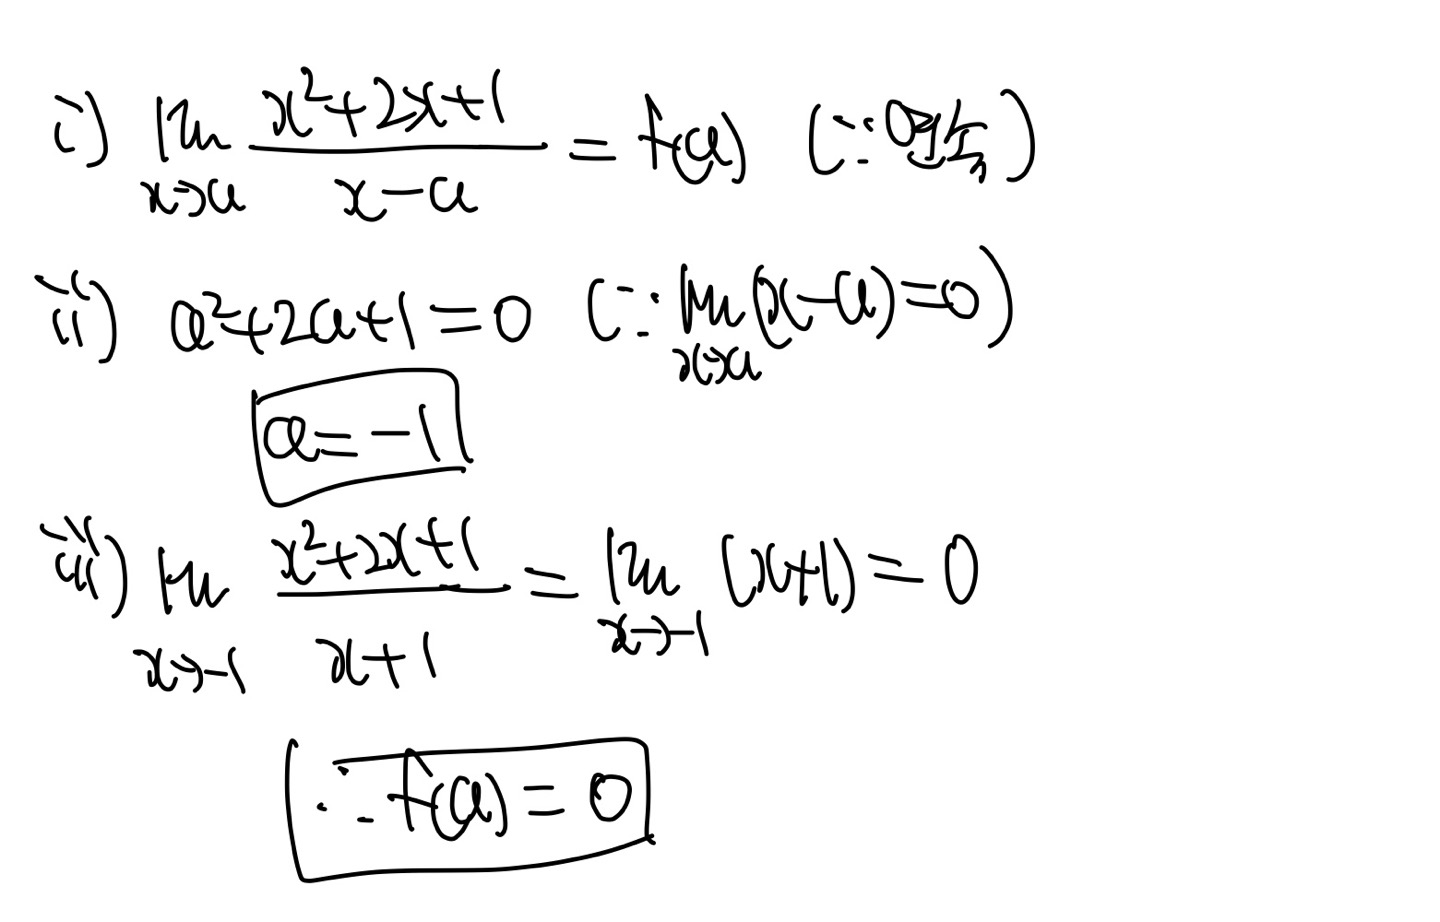 i) lim x→a (x²+2x+1)/(x-a) = f(a) (∵연속)
ii) a²+2a+1=0 (∵ lim x→a (x-a)=0)
a=-1
iii) lim x→-1 (x²+2x+1)/(x+1) = lim x→-1 (x+1) = 0
∴ f(a) = 0